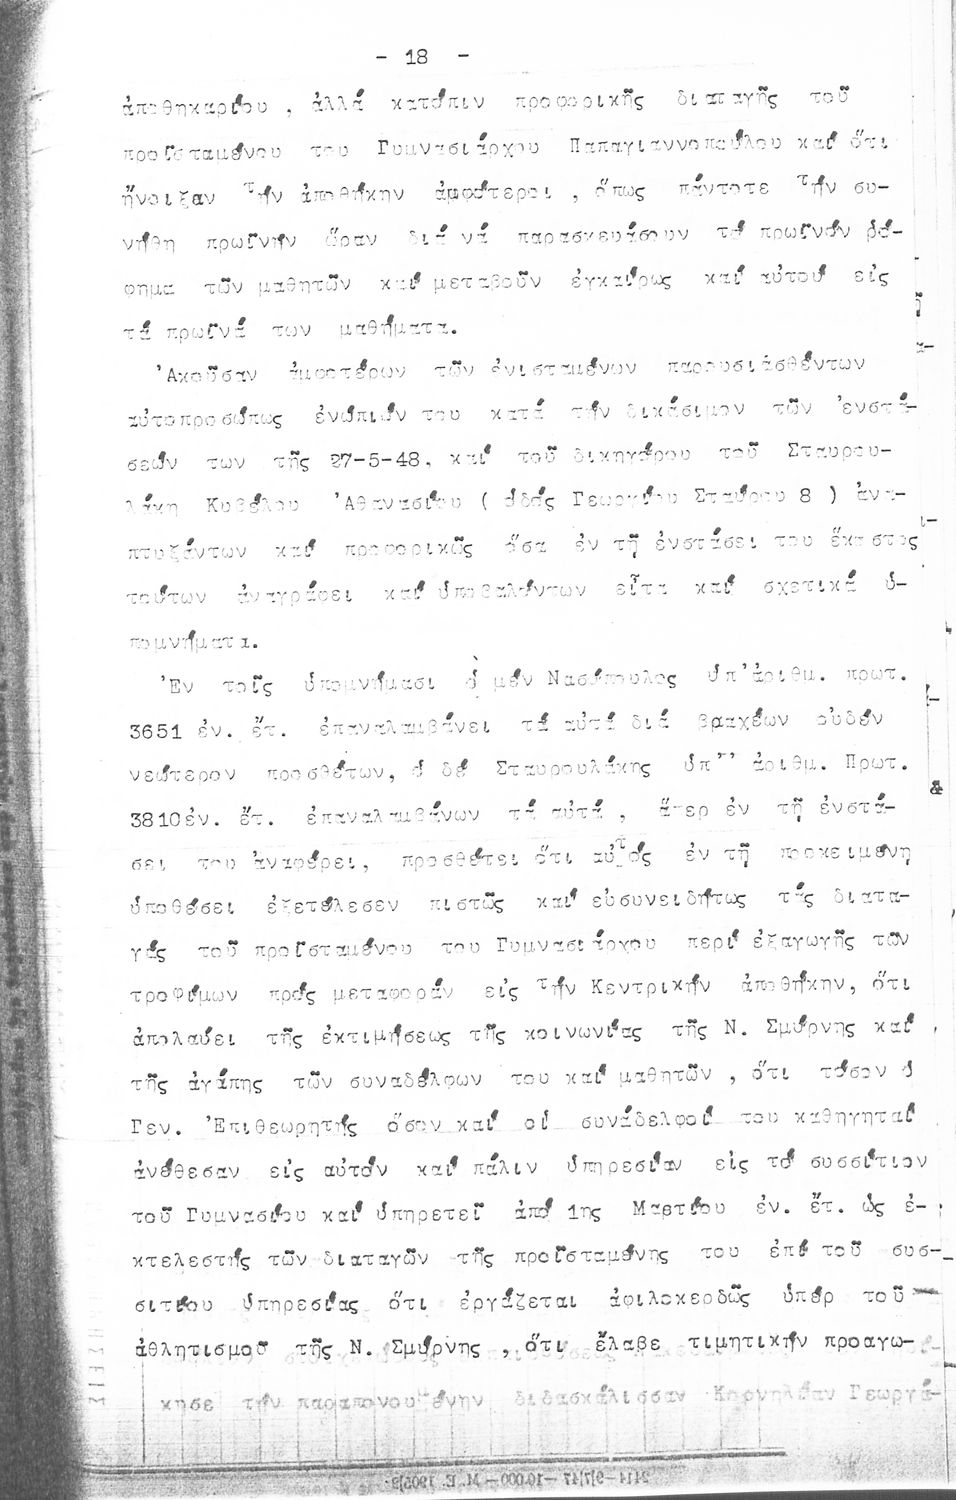 - 18 -
ἀποθηκαρίου , ἀλλά κατόπιν προφορικῆς διαταγῆς τοῦ
προϊσταμένου του Γυμνασιάρχου Παπαγιαννοπούλου καί ὅτι
ἤνοιξαν τήν ἀποθήκην ἀμφότεροι , ὅπως πάντοτε τήν συ-
νήθη πρωϊνήν ὥραν διά νά παρασκευάσουν τό πρωϊνόν ρό-
φημα τῶν μαθητῶν καί μεταβοῦν ἐγκαίρως καί αὐτοί εἰς
τά πρωϊνά των μαθήματα.
'Ακοῦσαν ἀμφοτέρων τῶν ἐνισταμένων παρουσιάσθέντων
αὐτοπροσώπως ἐνώπιόν του κατά τήν δικάσιμον τῶν 'ενστά-
σεών των τῆς 27-5-48, καί τοῦ δικηγόρου τοῦ Σταυρου-
λάκη Κυβέλου 'Αθανασίου ( ὁδός Γεωργίου Σταύρου 8 ) ἀνα-
πτυξάντων καί προφορικῶς ὅσα ἐν τῇ ἐνστάσει του ἕκαστος
τούτων ἀναγράφει καί ὑποβαλόντων εἶτα καί σχετικά ὑ-
πομνήματα.
'Εν τοῖς ὑπομνήμασι ὁ μέν Νασόπουλος ὑπ'ἀριθμ. πρωτ.
3651 ἐν. ἔτ. ἐπαναλαμβάνει τά αὐτά διά βραχέων οὐδέν
νεώτερον προσθέτων, ὁ δέ Σταυρουλάκης ὑπ'' ἀριθμ. Πρωτ.
3810ἐν. ἔτ. ἐπαναλαμβάνων τά αὐτά , ἅπερ ἐν τῇ ἐνστά-
σει του ἀναφέρει, προσθέτει ὅτι αὐτός ἐν τῇ προκειμένῃ
ὑποθέσει ἐξετέλεσεν πιστῶς καί εὐσυνειδήτως τάς διατα-
γάς τοῦ προϊσταμένου του Γυμνασιάρχου περί ἐξαγωγῆς τῶν
τροφίμων πρός μεταφοράν εἰς τήν Κεντρικήν ἀποθήκην, ὅτι
ἀπολαύει τῆς ἐκτιμήσεως τῆς κοινωνίας τῆς Ν. Σμύρνης καί
τῆς ἀγάπης τῶν συναδέλφων του καί μαθητῶν , ὅτι τόσον ὁ
Γεν. 'Επιθεωρητής ὅσον καί οἱ συνάδελφοί του καθηγηταί
ἀνέθεσαν εἰς αὐτόν καί πάλιν ὑπηρεσίαν εἰς τό συσσίτιον
τοῦ Γυμνασίου καί ὑπηρετεῖ ἀπό 1ης Μαρτίου ἐν. ἔτ. ὡς ἐ-
κτελεστής τῶν διαταγῶν τῆς προϊσταμένης του ἐπί τοῦ συσ-
σιτίου ὑπηρεσίας ὅτι ἐργάζεται ἀφιλοκερδῶς ὑπέρ τοῦ
ἀθλητισμοῦ τῆς Ν. Σμύρνης , ὅτι ἔλαβε τιμητικήν προαγω-
κησε τήν παραπονουμένην διδασκάλισσαν Κορνηλίαν Γεωργά-
2414-9/7/47 -10.000- Μ. Ε. 1905/3